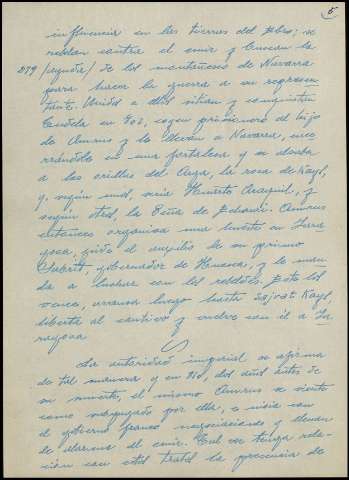 5
influencia en las tierras del Ebro; se
rebelan contra el emir y buscan la
279 /ayuda/ de los montañeses de Navarra
para hacer la guerra a su represen
tante. Unidos a ellos sitian y conquistan
Tudela en 802, cogen prisionero al hijo
de Amrus y lo llevan a Navarra, ence
rrándolo en una fortaleza y se alzaba
a las orillas del Arga, la roca de Kays,
y, según unos, sería Huarte Araquil, y
según otros, la Peña de Echauri. Amrus
entonces organiza una hueste en Zara
goza, pide el auxilio de su primo
Sabrit, gobernador de Huesca, y lo man
da a luchar con los rebeldes. Este los
vence, avanza luego hasta Sajrat Kays,
liberta al cautivo y vuelve con él a Za
ragoza.
La autoridad imperial se afirma
de tal manera y en 810, dos años antes de
su muerte, el mismo Amrus se siente
como subyugado por ella, e inicia con
el gobierno franco negociaciones y llenan
de alarma al emir. Cual ve tenga rela-
ción con estos tratos la presencia de